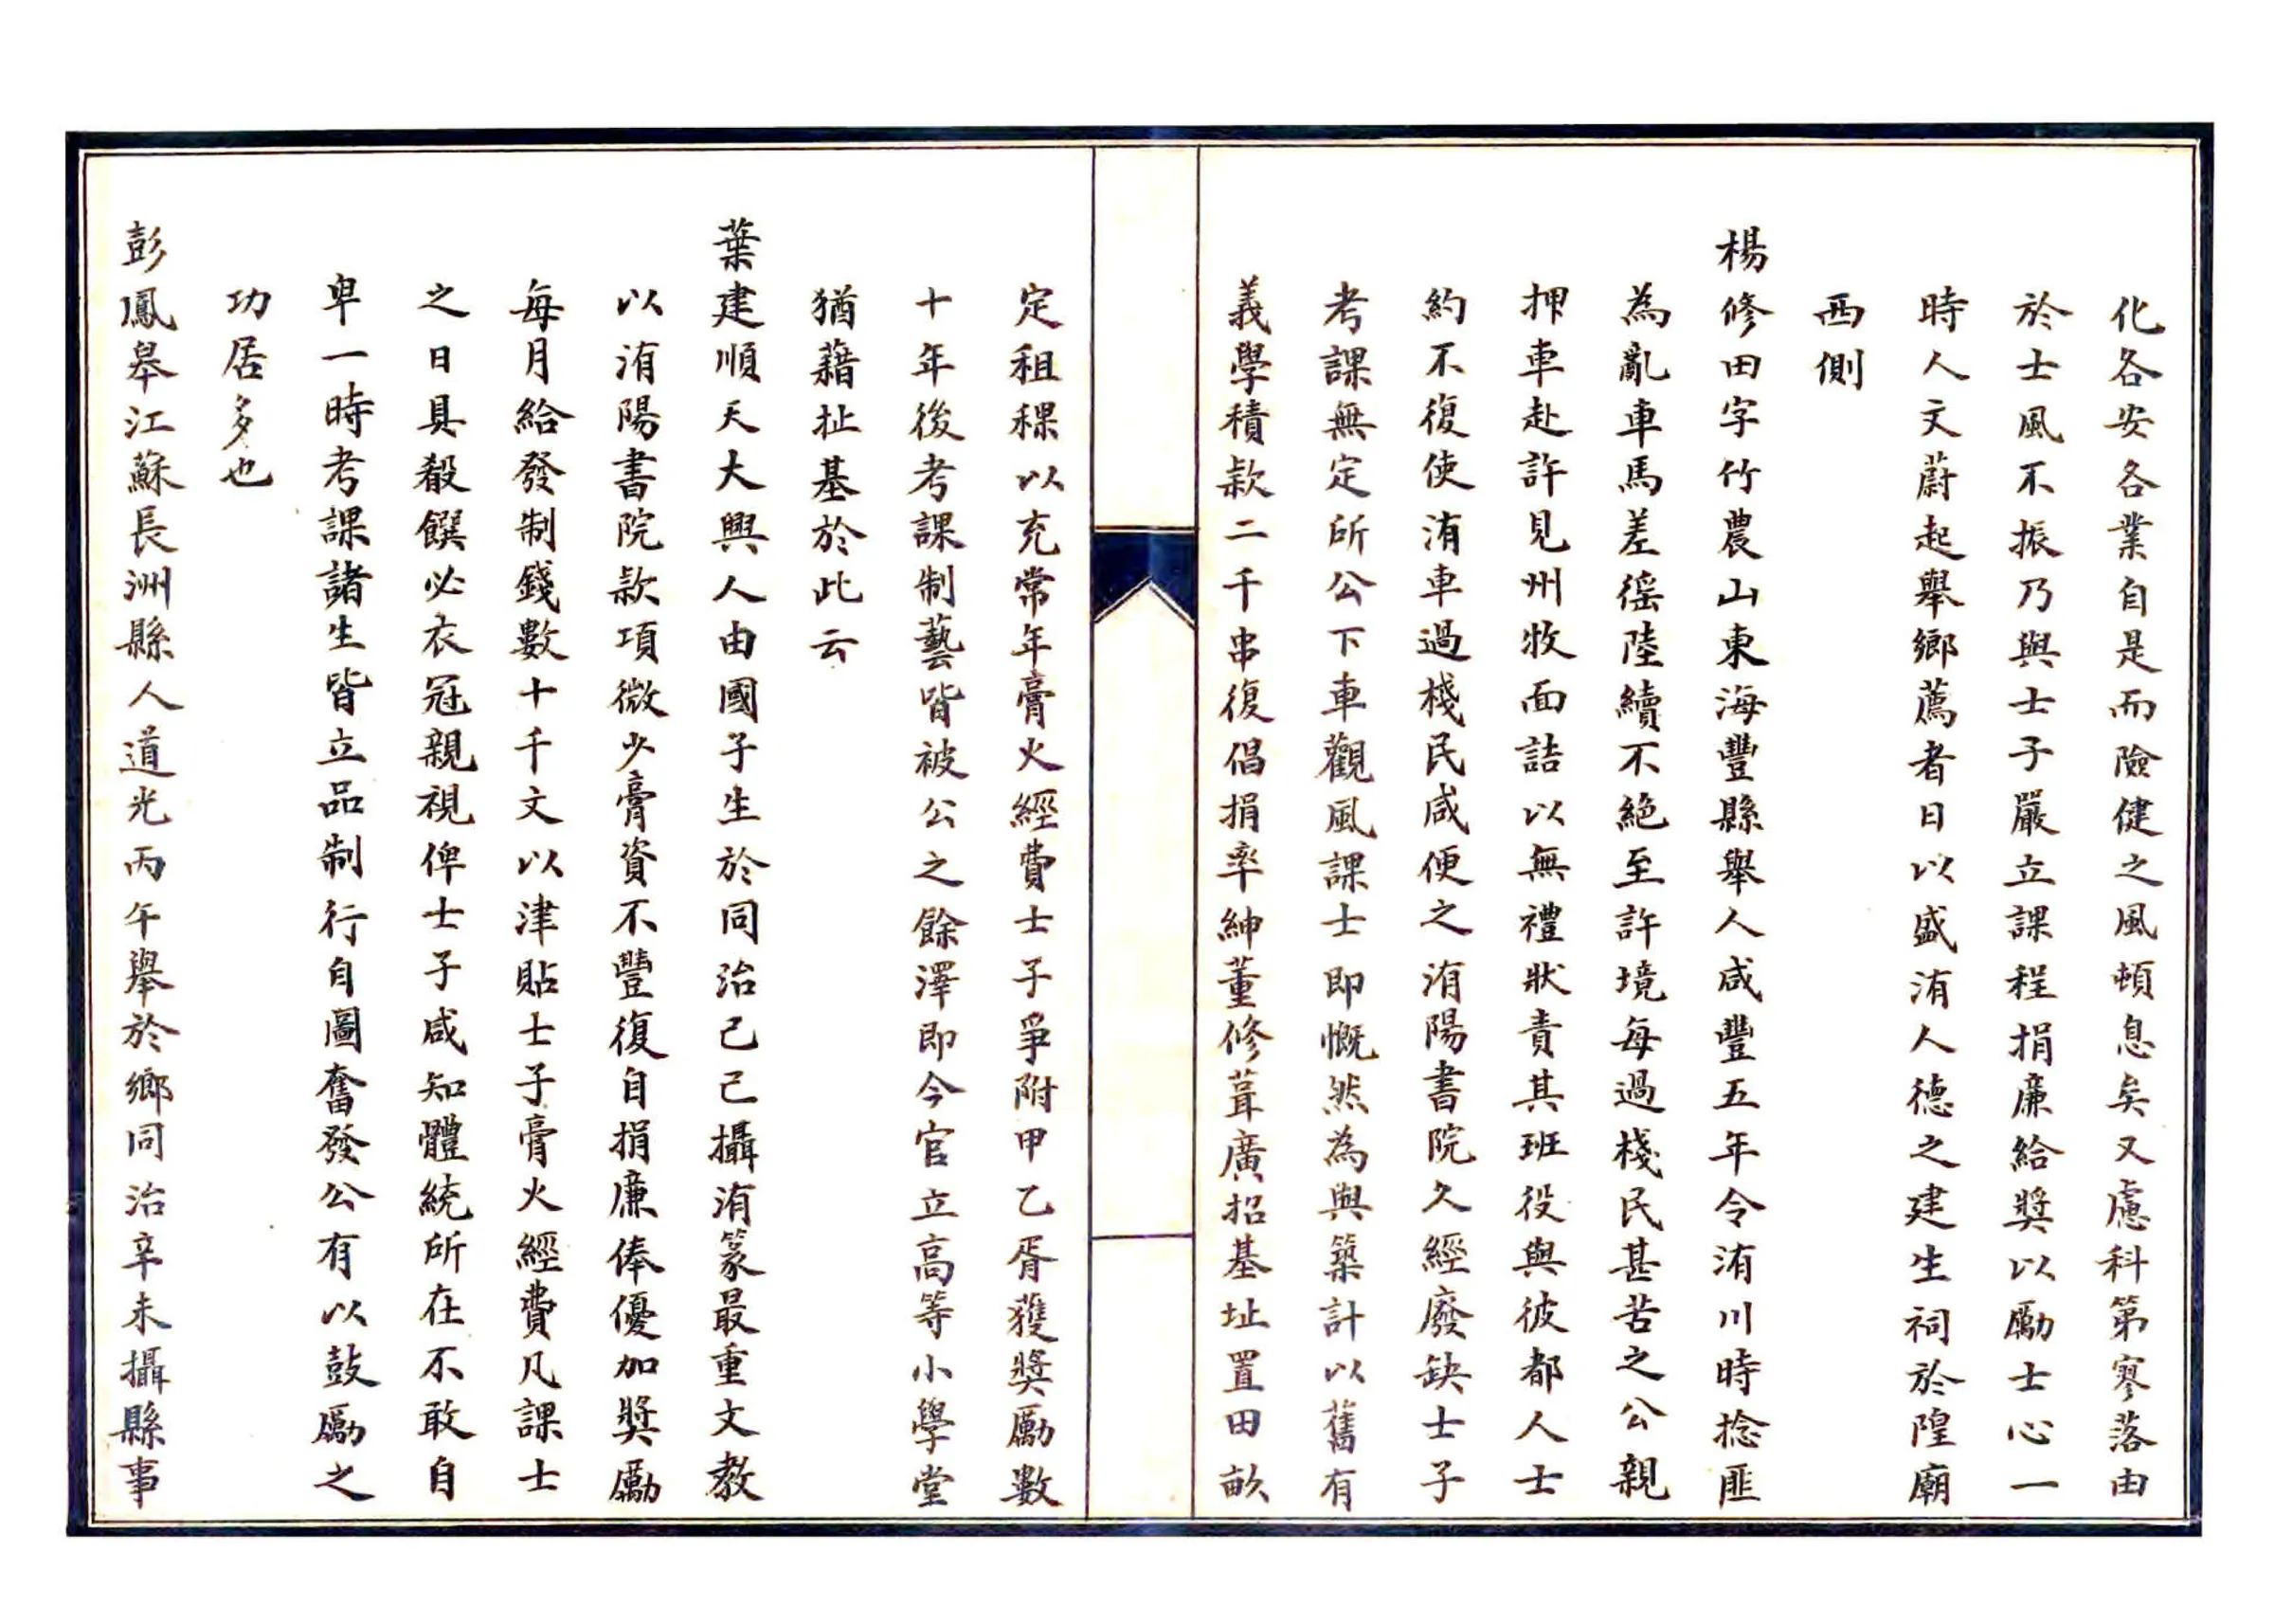 化各安各業自是而險健之風頓息矣又慮科第寥落由
於士風不振乃與士子嚴立課程捐廉給奬以勵士心一
時人文蔚起舉鄉薦者日以盛洧人德之建生祠於隍廟
西側
楊修田字竹農山東海豐縣舉人咸豐五年令洧川時捻匪
為亂車馬差徭陸續不絕至許境每過棧民甚苦之公親
押車赴許見州牧面詰以無禮狀責其班役與彼都人士
約不復使洧車過棧民咸便之洧陽書院久經廢缺士子
考課無定所公下車觀風課士即慨然為興築計以舊有
義學積款二千串復倡捐率紳董修葺廣招基址置田畝
定租稞以充常年膏火經費士子爭附甲乙胥獲奬勵數
十年後考課制藝皆被公之餘澤即今官立高等小學堂
猶藉址基於此云
葉建順天大興人由國子生於同治己己攝洧篆最重文教
以洧陽書院款項微少膏資不豐復自捐廉俸優加奬勵
每月給發制錢數十千文以津貼士子膏火經費凡課士
之日具殽饌必衣冠親視俾士子咸知體統所在不敢自
卑一時考課諸生皆立品制行自圖奮發公有以鼓勵之
功居多也
彭鳳皋江蘇長洲縣人道光丙午舉於鄉同治辛未攝縣事